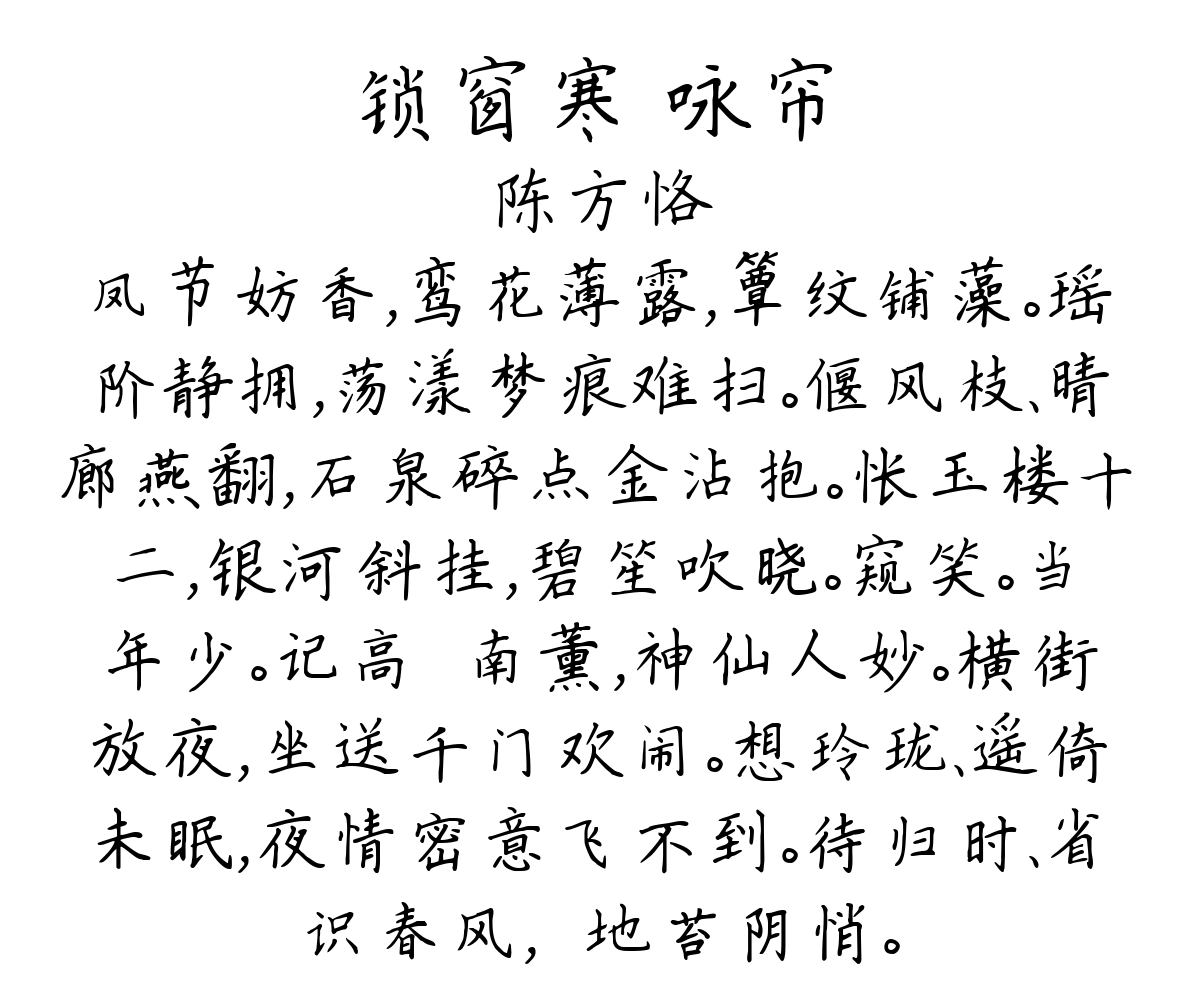 锁窗寒 咏帘
陈方恪
凤节妨香,鸾花薄露,簟纹铺藻。瑶
阶静拥,荡漾梦痕难扫。偃风枝、晴
廊燕翻,石泉碎点金沾抱。怅玉楼十
二,银河斜挂,碧笙吹晓。窥笑。当
年少。记高 南薰,神仙人妙。横街
放夜,坐送千门欢闹。想玲珑、遥倚
未眠,夜情密意飞不到。待归时、省
识春风, 地苔阴悄。